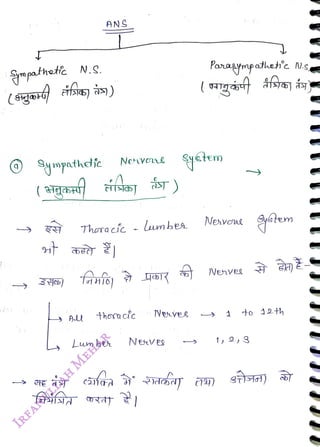 ANS
Sympathetic N.S.
(अनुकम्पी तंत्रिका तंत्र)
Parasympathetic N.S
(परानुकंपी तंत्रिका तंत्र)
① Sympathetic Nervous System →
(अनुकम्पी तंत्रिका तंत्र)
→ इसे Thoracic - Lumber Nervous System
भी कहते हैं।
→ इसका निर्माण दो प्रकार की Nerves से होता है-
↳ All thoracic Nerves → 1 to 12th
↳ Lumber Nerves → 1, 2, 3
→ यह तंत्र व्यक्ति में सतर्कता तथा उत्तेजना को
नियंत्रित करता है।